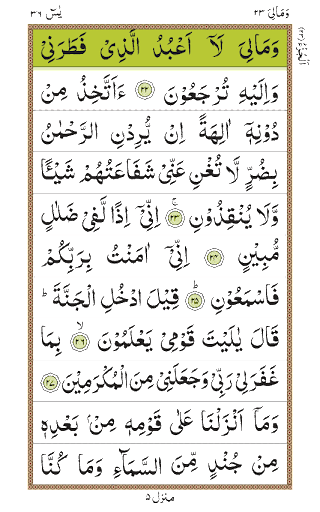 وَمَالِیَ ٢٣
یٰسٓ ٣٦
وَمَالِیَ لَاۤ اَعْبُدُ الَّذِیْ فَطَرَنِیْ
وَاِلَیْهِ تُرْجَعُوْنَ ﴿۲۲﴾ ءَاَتَّخِذُ مِنْ
دُوْنِهٖۤ اٰلِهَةً اِنْ یُّرِدْنِ الرَّحْمٰنُ
بِضُرٍّ لَّا تُغْنِ عَنِّیْ شَفَاعَتُهُمْ شَیْـًٔا
وَّلَا یُنْقِذُوْنِ ﴿۲۳﴾ۚ اِنِّیْۤ اِذًا لَّفِیْ ضَلٰلٍ
مُّبِیْنٍ ﴿۲۴﴾ اِنِّیْۤ اٰمَنْتُ بِرَبِّكُمْ
فَاسْمَعُوْنِ ﴿۲۵﴾ؕ قِیْلَ ادْخُلِ الْجَنَّةَ ؕ
قَالَ یٰلَیْتَ قَوْمِیْ یَعْلَمُوْنَ ﴿۲۶﴾ۙ بِمَا
غَفَرَلِیْ رَبِّیْ وَجَعَلَنِیْ مِنَ الْمُكْرَمِیْنَ ﴿۲۷﴾
وَمَاۤ اَنْزَلْنَا عَلٰی قَوْمِهٖ مِنْۢ بَعْدِهٖ
مِنْ جُنْدٍ مِّنَ السَّمَآءِ وَمَا كُنَّا
منزل ۵